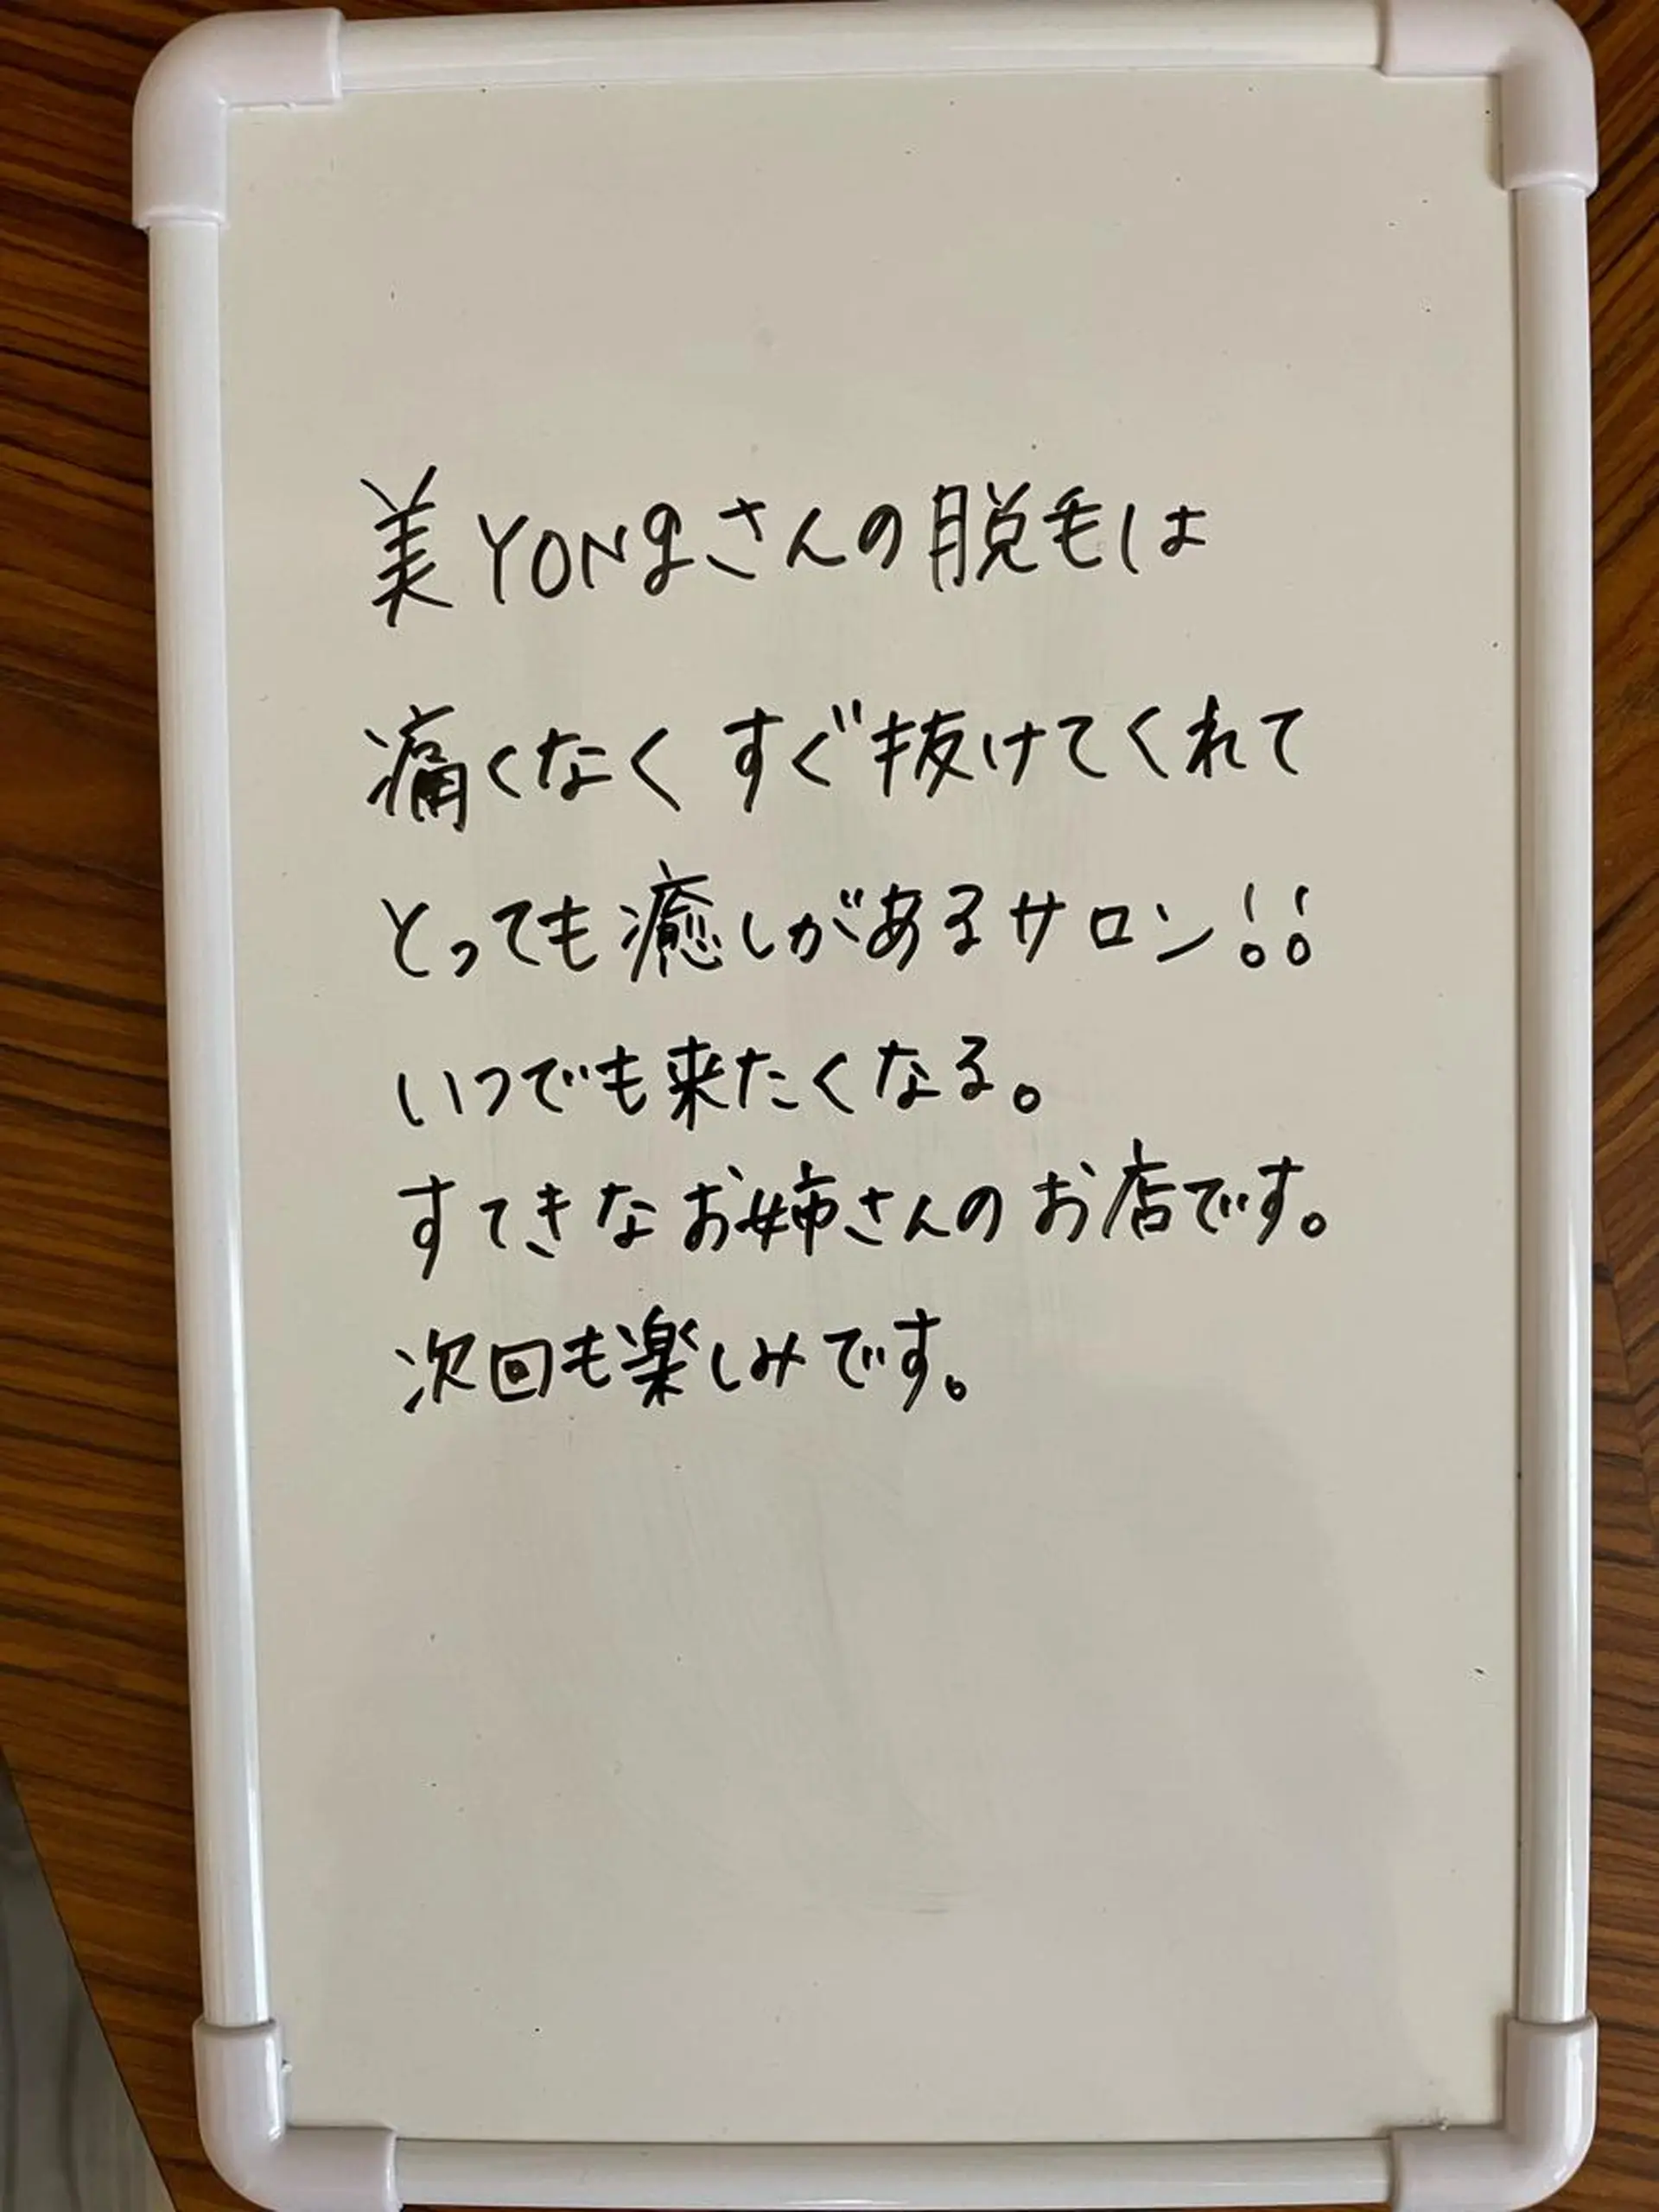 美YONgさんの脱毛は
痛くなくすぐ抜けてくれて
とっても癒しがあるサロン!!
いつでも来たくなる。
すてきなお姉さんのお店です。
次回も楽しみです。